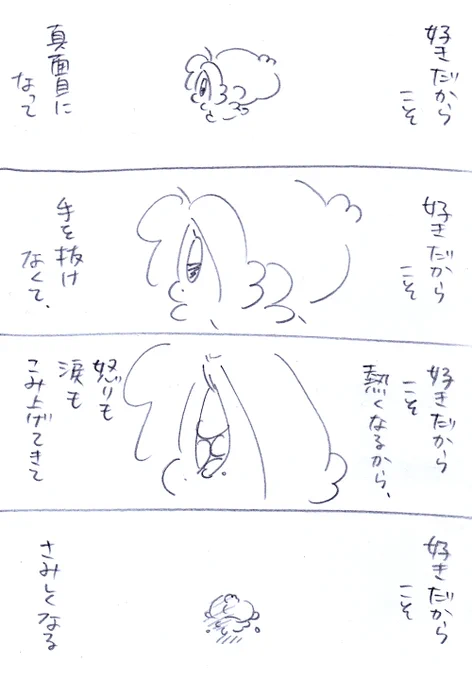 好きだから
こそ
真面目に
なって
好きだから
こそ
手を抜け
なくて、
好きだから
こそ
熱くなるから、
怒りも
涙も
こみ上げてきて
好きだから
こそ
さみしくなる